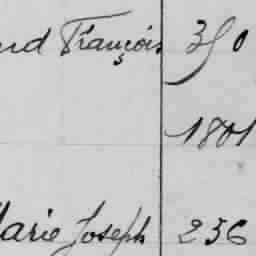 nd François 350
1801
Marie Joseph 236